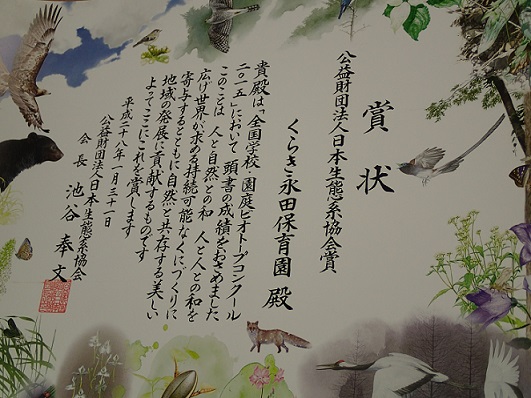 賞状
公益財団法人日本生態系協会賞
くらき永田保育園 殿
貴殿は「全国学校・園庭ビオトープコンクール
二〇一五」において 頭書の成績をおさめました
このことは 人と自然との和 人と人との和を
広げ世界が求める持続可能なくにづくりに
寄与するとともに自然と共存する美しい
地域の発展に貢献するものです
よってここにこれを賞します
平成二十八年一月三十一日
公益財団法人日本生態系協会
会長 池谷 奉文